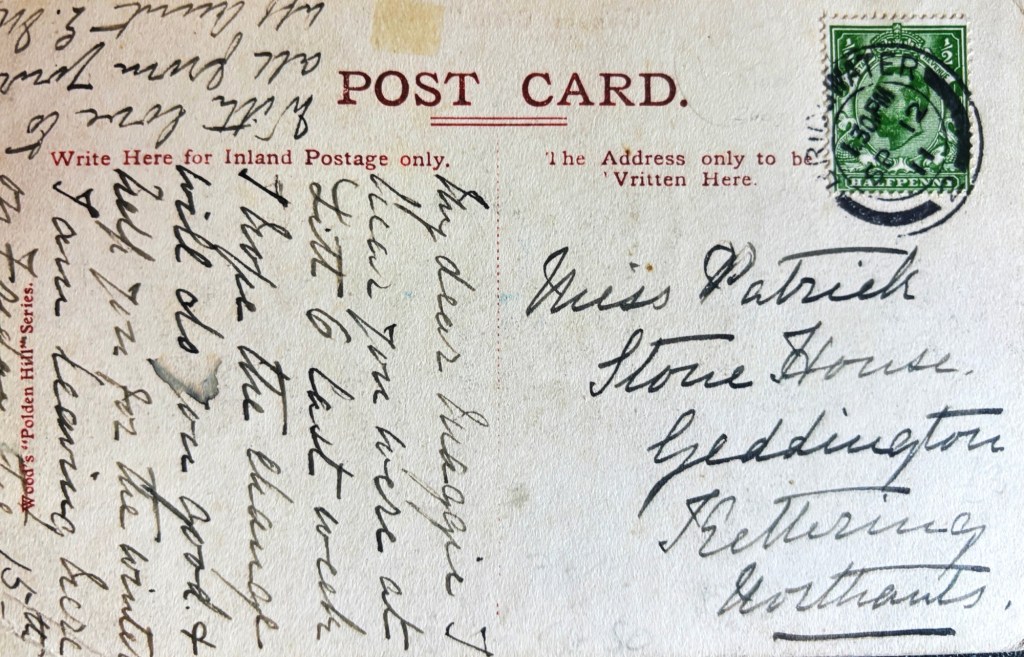 POST CARD.
Write Here for Inland Postage only.
The Address only to be
Written Here.
BRIDGWATER
1.30 PM
SP 12
11
HALFPENNY
Miss Patrick
Stone House.
Geddington
Kettering
Northants.
My dear Maggie I
hear you were at
Litt 6 last week
I hope the change
will do you good &
help you for the winter
I am leaving here
on 15th
With love to
all from your
aff Aunt E. M
Wood's "Polden Hill" Series.